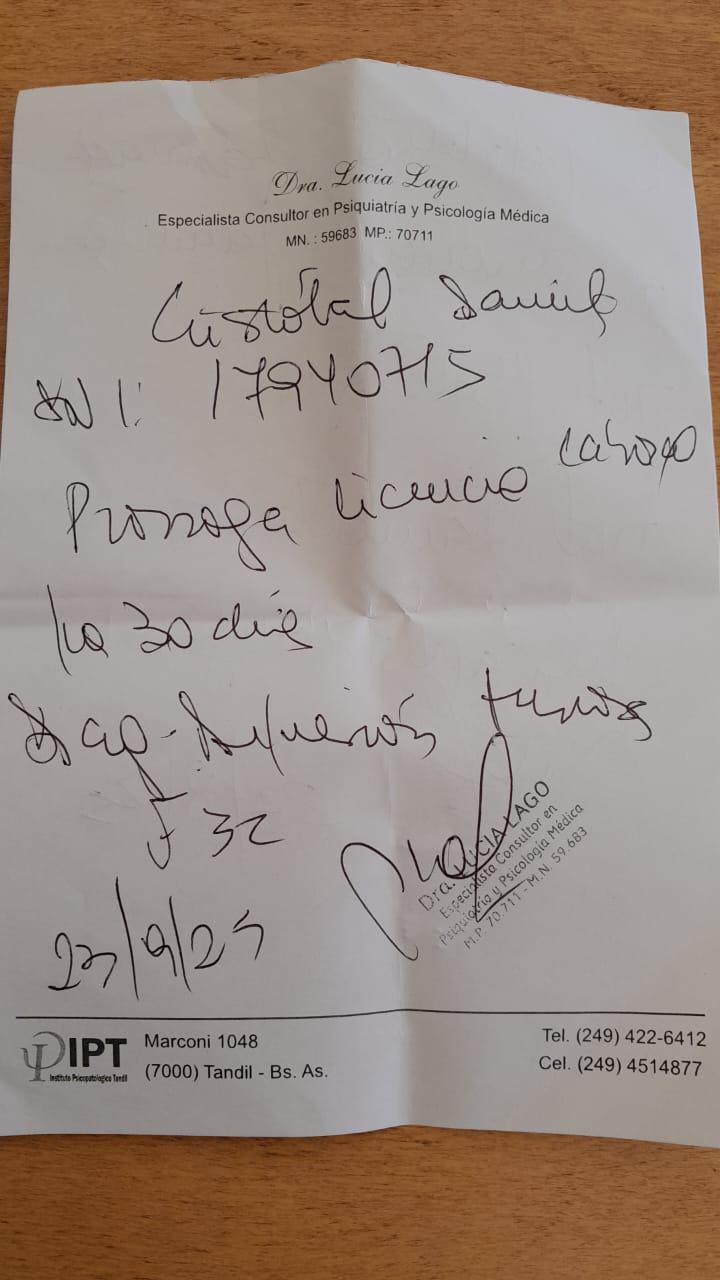 Dra. Lucia Lago
Especialista Consultor en Psiquiatría y Psicología Médica
MN. : 59683 MP.: 70711
Cristóbal Daniel
DNI: 17940715
Prorroga licencia laboral
por 30 días
Diag- Depresión
F 32
23/9/25
Dra. LUCIA LAGO
Especialista Consultor en
Psiquiatría y Psicología Médica
M.P. 70.711 - M.N. 59.683
IPT
Instituto Psicopatologico Tandil
Marconi 1048
(7000) Tandil - Bs. As.
Tel. (249) 422-6412
Cel. (249) 4514877